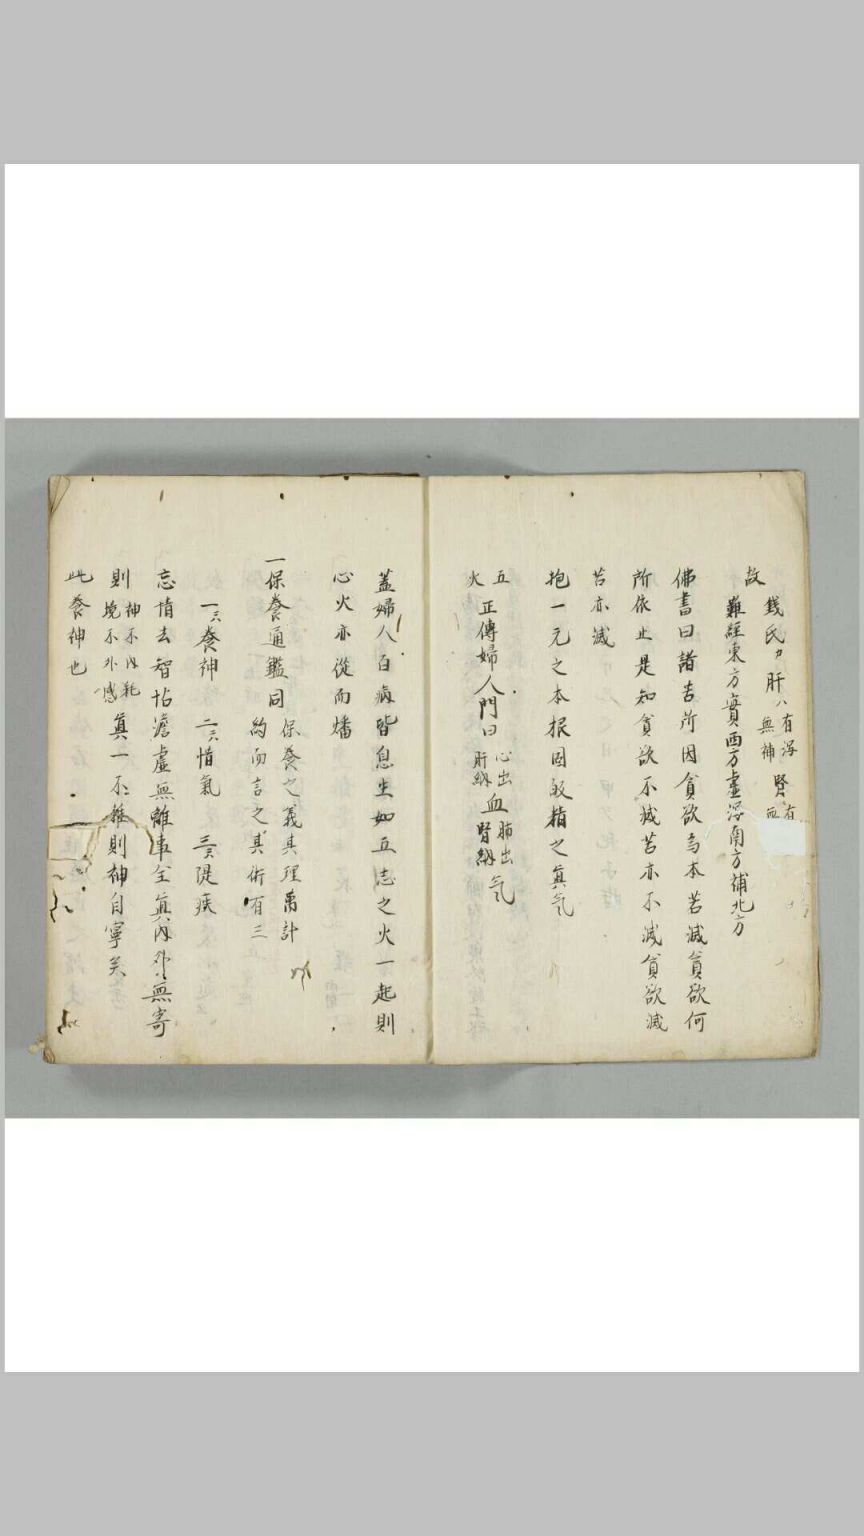 故 錢氏カ肝ハ有瀉無補 腎有
難經東方實西方虛瀉南方補北方
佛書曰諸苦所因貪欲為本若滅貪欲何
所依止是知貪欲不滅苦亦不滅貪欲滅
苦亦滅
抱一元之本根固 精之真气
五火 正傳婦人門曰 心出肝納血 肺出腎納気
蓋婦人百病皆息生如五志之火一起則
心火亦從而燔
一保養通鑑同 保養之義其理萬計約而言之其術有三
一ニハ養神 二ニハ惜氣 三ニ隄疾
忘情去智恬澹虛無離事全真內外無寄
則神不內耗境不外惑真一不雜則神自寧矣
此養神也